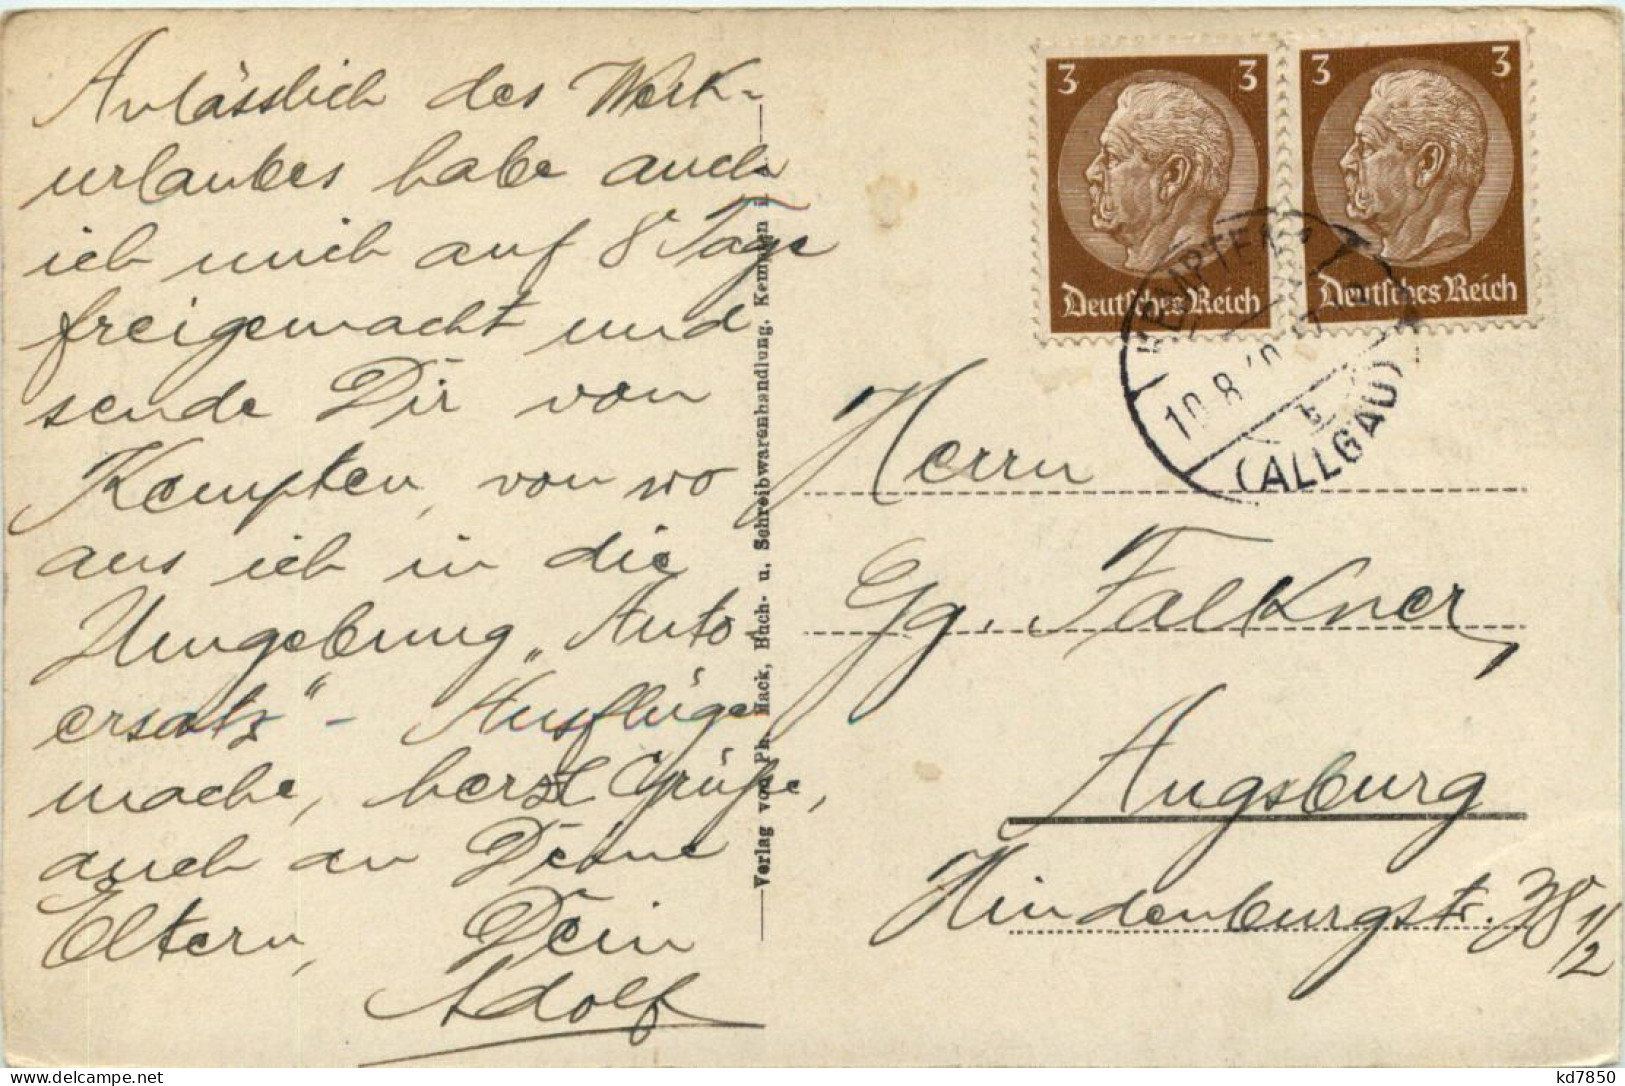 Anlässlich des Werk-
urlaubes habe auch
ich mich auf 8 Tage
freigemacht und
sende Dir von
Kempten, von wo
aus ich in die
Umgebung „Auto
ersatz“ - Ausflüge
mache, herzl Grüße,
auch an Deine
Eltern, Dein
Adolf
Verlag von Ph. Hack, Buch- u. Schreibwarenhandlung, Kempten i. A.
3 3
Deutsches Reich
3 3
Deutsches Reich
KEMPTEN
10.8.40
b
(ALLGÄU)
Herrn
Gg. Falkner,
Augsburg
Hindenburgstr. 38 1/2
kd7850